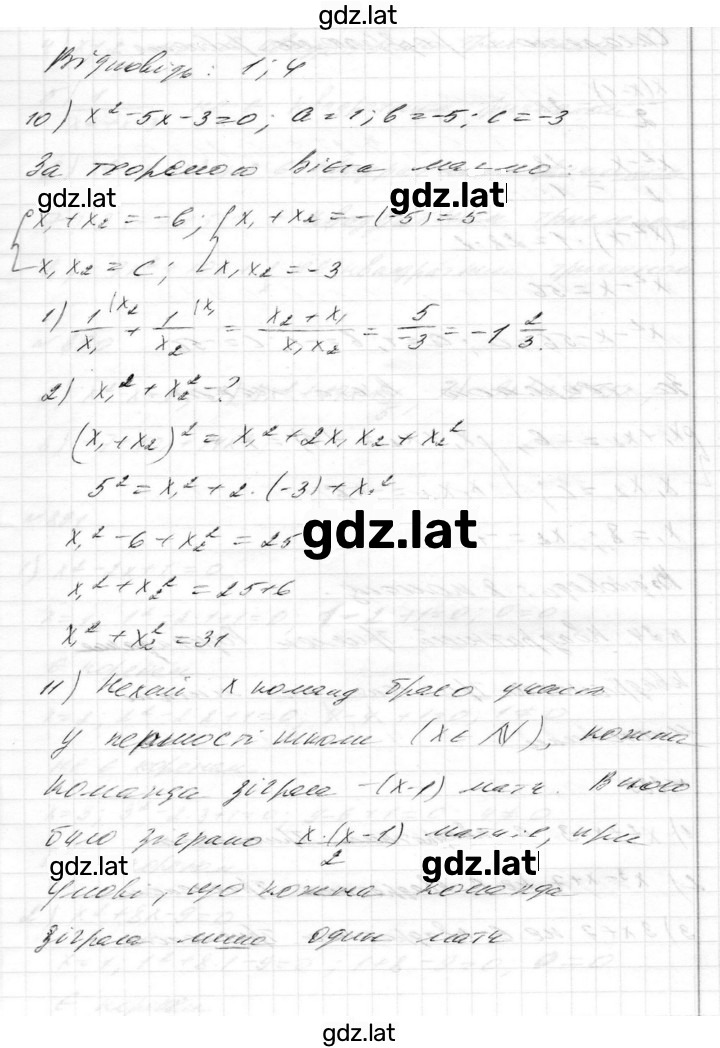 gdz.lat
Відповідь: 1; 4
10) x² - 5x - 3 = 0; a = 1; b = -5; c = -3
За теоремою Вієта маємо:
gdz.lat gdz.lat
{ x₁ + x₂ = -b; { x₁ + x₂ = -(-5) = 5
x₁ x₂ = c; x₁ x₂ = -3
1) 1/x₁ (x₂ + 1/x₂ (x₁ = (x₂ + x₁)/(x₁ x₂) = 5/-3 = -1 2/3.
2) x₁² + x₂² - ?
(x₁ + x₂)² = x₁² + 2x₁ x₂ + x₂²
5² = x₁² + 2 · (-3) + x₂²
x₁² - 6 + x₂² = 25
gdz.lat
x₁² + x₂² = 25 + 6
x₁² + x₂² = 31
11) Нехай x команд брало участь
у першості школи (x ∈ N), кожна
команда зіграла -(x-1) матч. Всього
було зіграно x·(x-1)/2 матчів, при
gdz.lat gdz.lat
умові, що кожна команда
зіграла лише один матч
gdz.lat